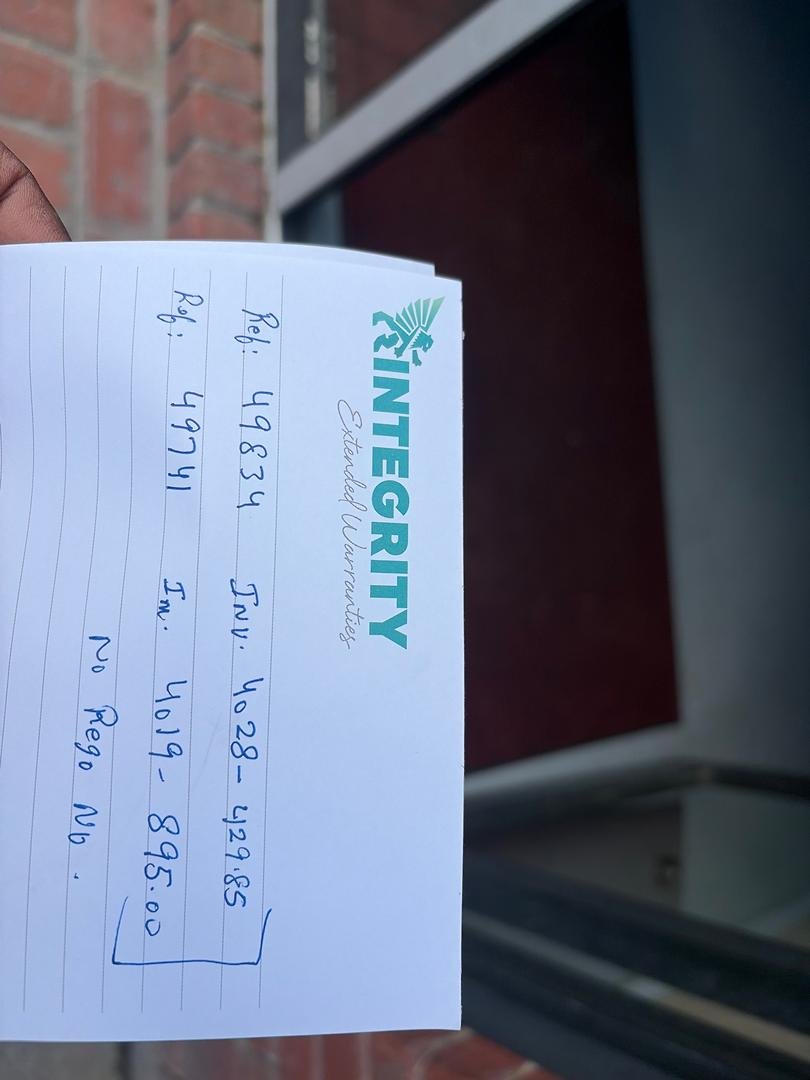 INTEGRITY
Extended Warranties
Ref: 49834 INV. 4028 - 429.85
Ref: 49741 Inv. 4019 - 895.00
No Rego No.